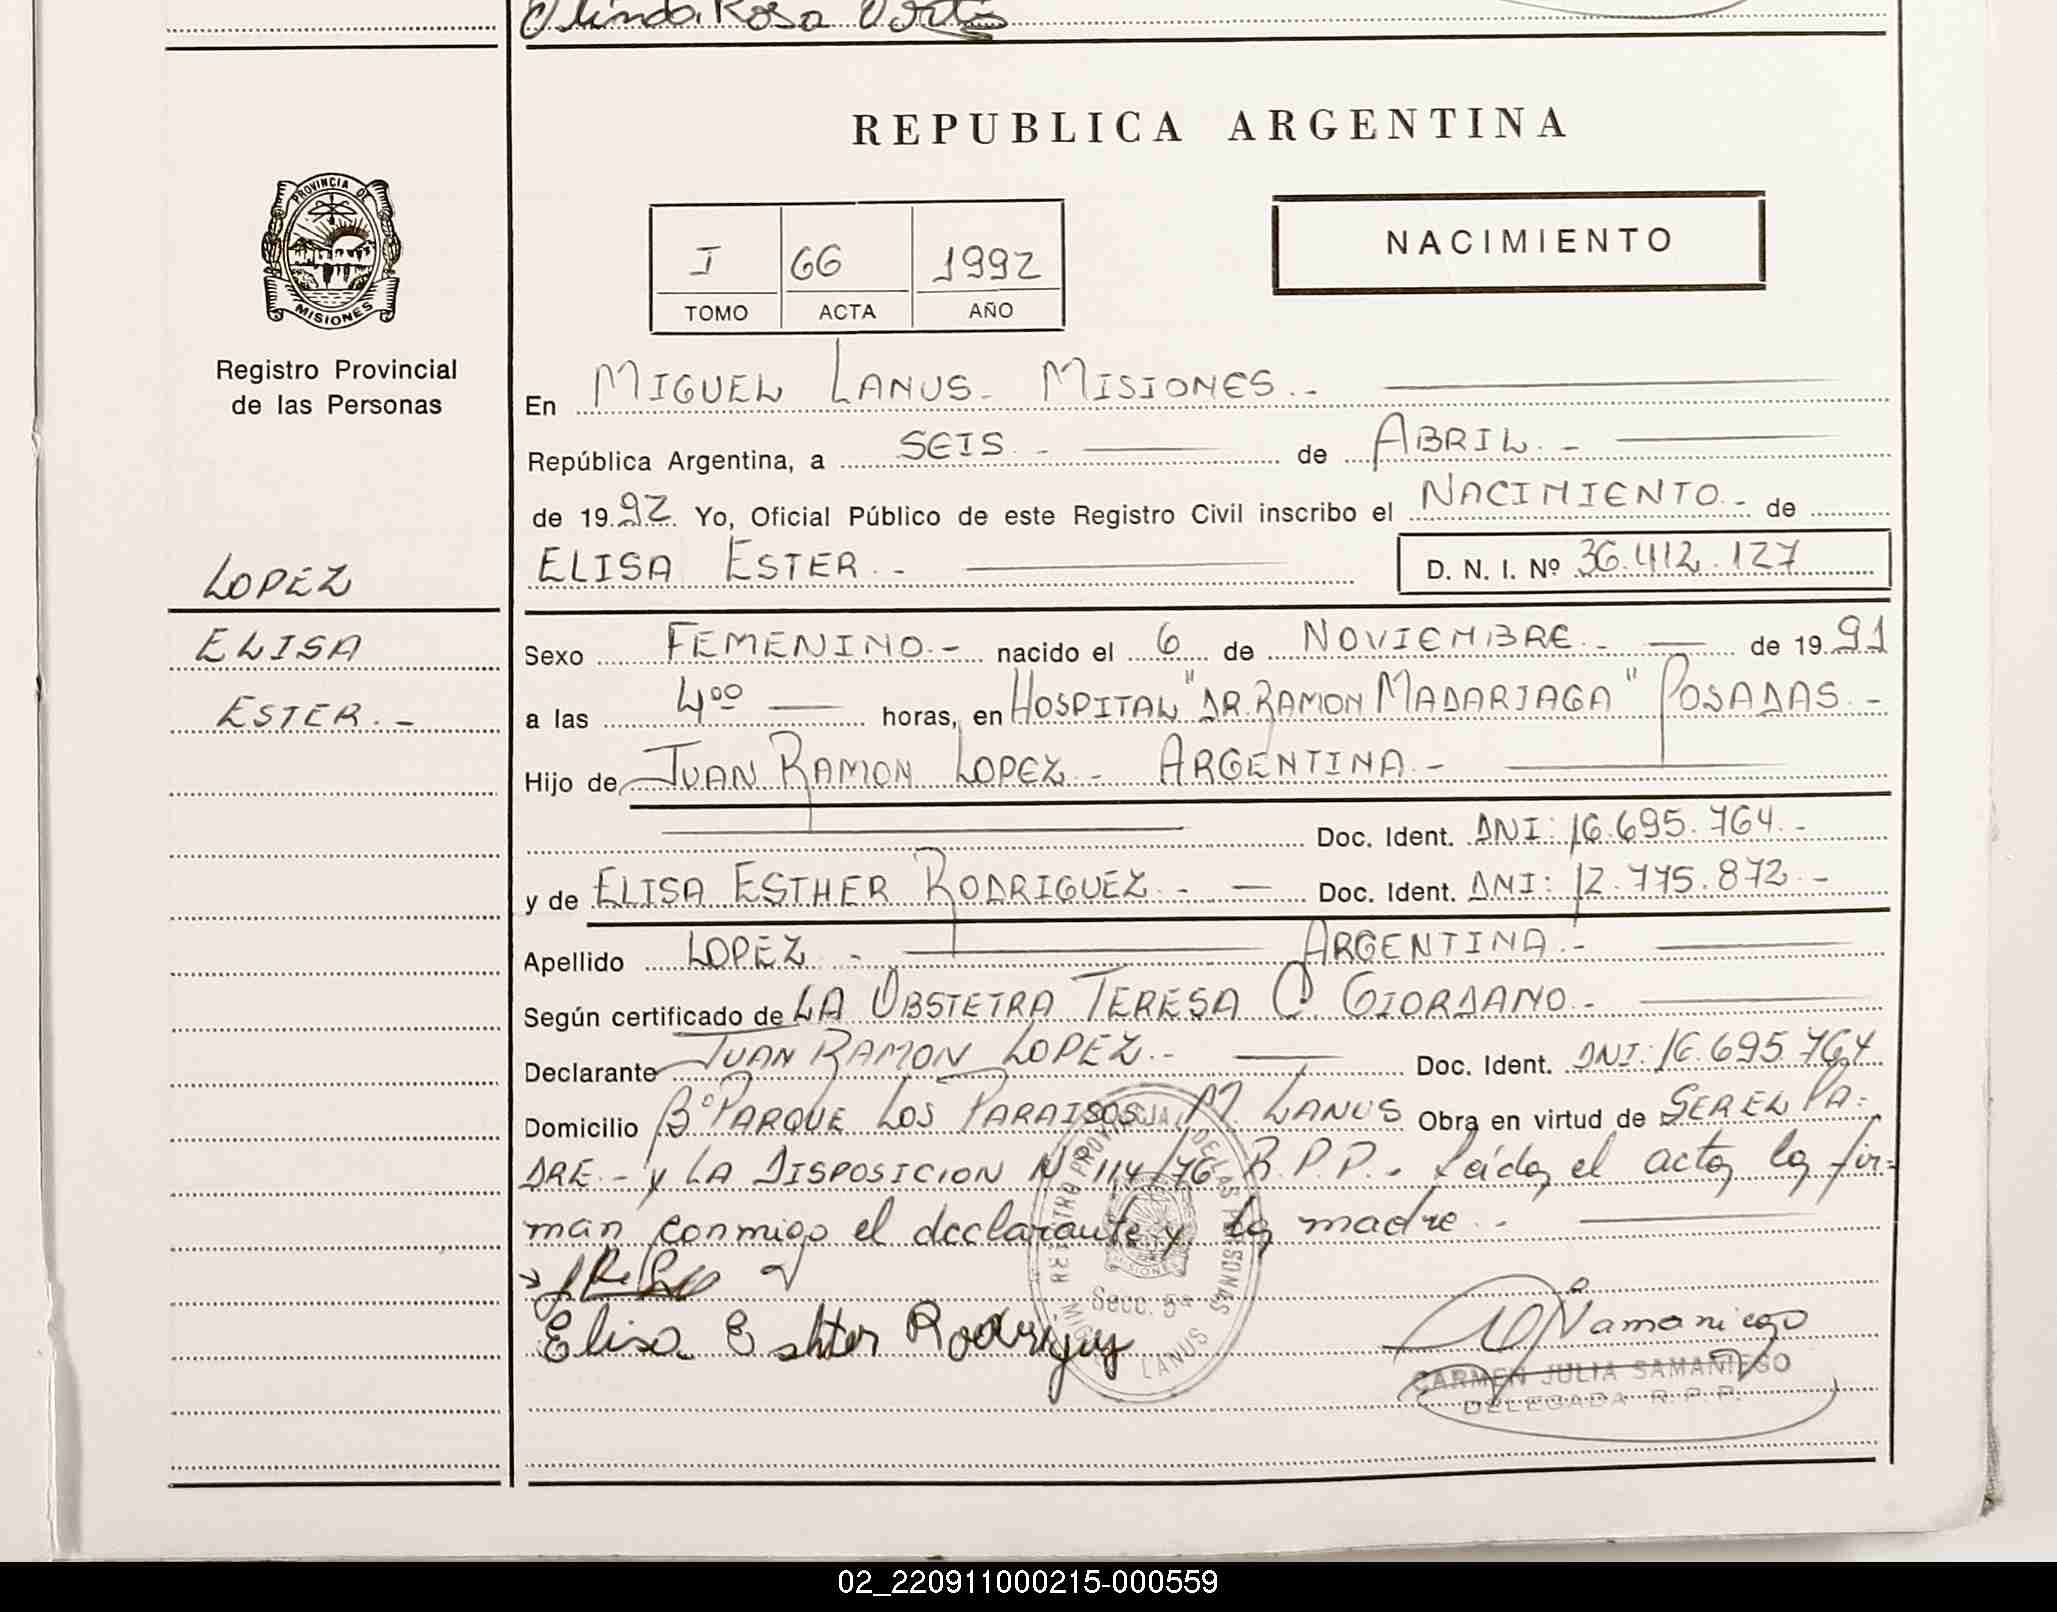 Olinda Rosa Ortis
REPUBLICA ARGENTINA
PROVINCIA DE
MISIONES
Registro Provincial
de las Personas
I 66 1992
TOMO ACTA AÑO
NACIMIENTO
En MIGUEL LANUS - MISIONES.-
República Argentina, a SEIS.- de ABRIL.-
de 1992. Yo, Oficial Público de este Registro Civil inscribo el NACIMIENTO.- de
ELISA ESTER.- D. N. I. Nº 36.412.127
LOPEZ
ELISA
ESTER.-
Sexo FEMENINO.- nacido el 6 de NOVIEMBRE.- de 1991
a las 4⁰⁰ horas, en HOSPITAL "DR. RAMON MADARIAGA" POSADAS.-
Hijo de JUAN RAMON LOPEZ.- ARGENTINA.-
Doc. Ident. DNI: 16.695.764.-
y de ELISA ESTHER RODRIGUEZ.- Doc. Ident. DNI: 12.775.872.-
Apellido LOPEZ.- ARGENTINA.-
Según certificado de LA OBSTETRA TERESA C. GIORDANO.-
Declarante JUAN RAMON LOPEZ.- Doc. Ident. DNI: 16.695.764
Domicilio Bº PARQUE LOS PARAISOS M. LANUS Obra en virtud de SER EL PA-
DRE.- y LA DISPOSICION Nº 114/76 R.P.P.- Leída el acta, la fir=
man conmigo el declarante y la madre.-
Elisa Eshter Rodriguez
REGISTRO PROVINCIAL DE LAS PERSONAS
MISIONES
Secc. 5ª
LANUS
Samaniego
CARMEN JULIA SAMANIEGO
DELEGADA R.P.P.
02_220911000215-000559